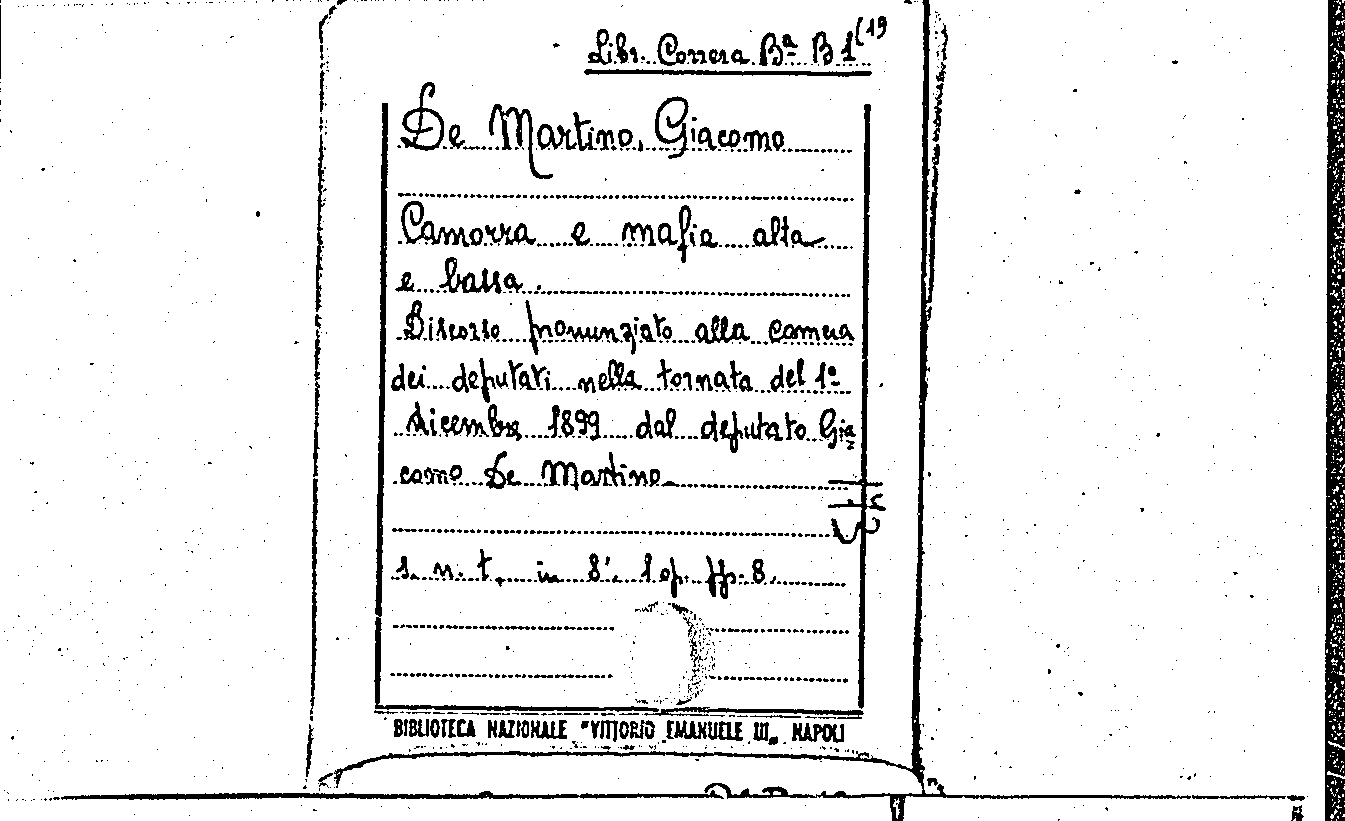 Libr. Correra Bª B 1(19
De Martino, Giacomo
Camorra e mafia alta
e bassa.
Discorso pronunziato alla camera
dei deputati nella tornata del 1º
dicembre 1899 dal deputato Gia
como De Martino.
s. n. t. in 8º. 1 op. pp. 8.
BIBLIOTECA NAZIONALE "VITTORIO EMANUELE III" NAPOLI